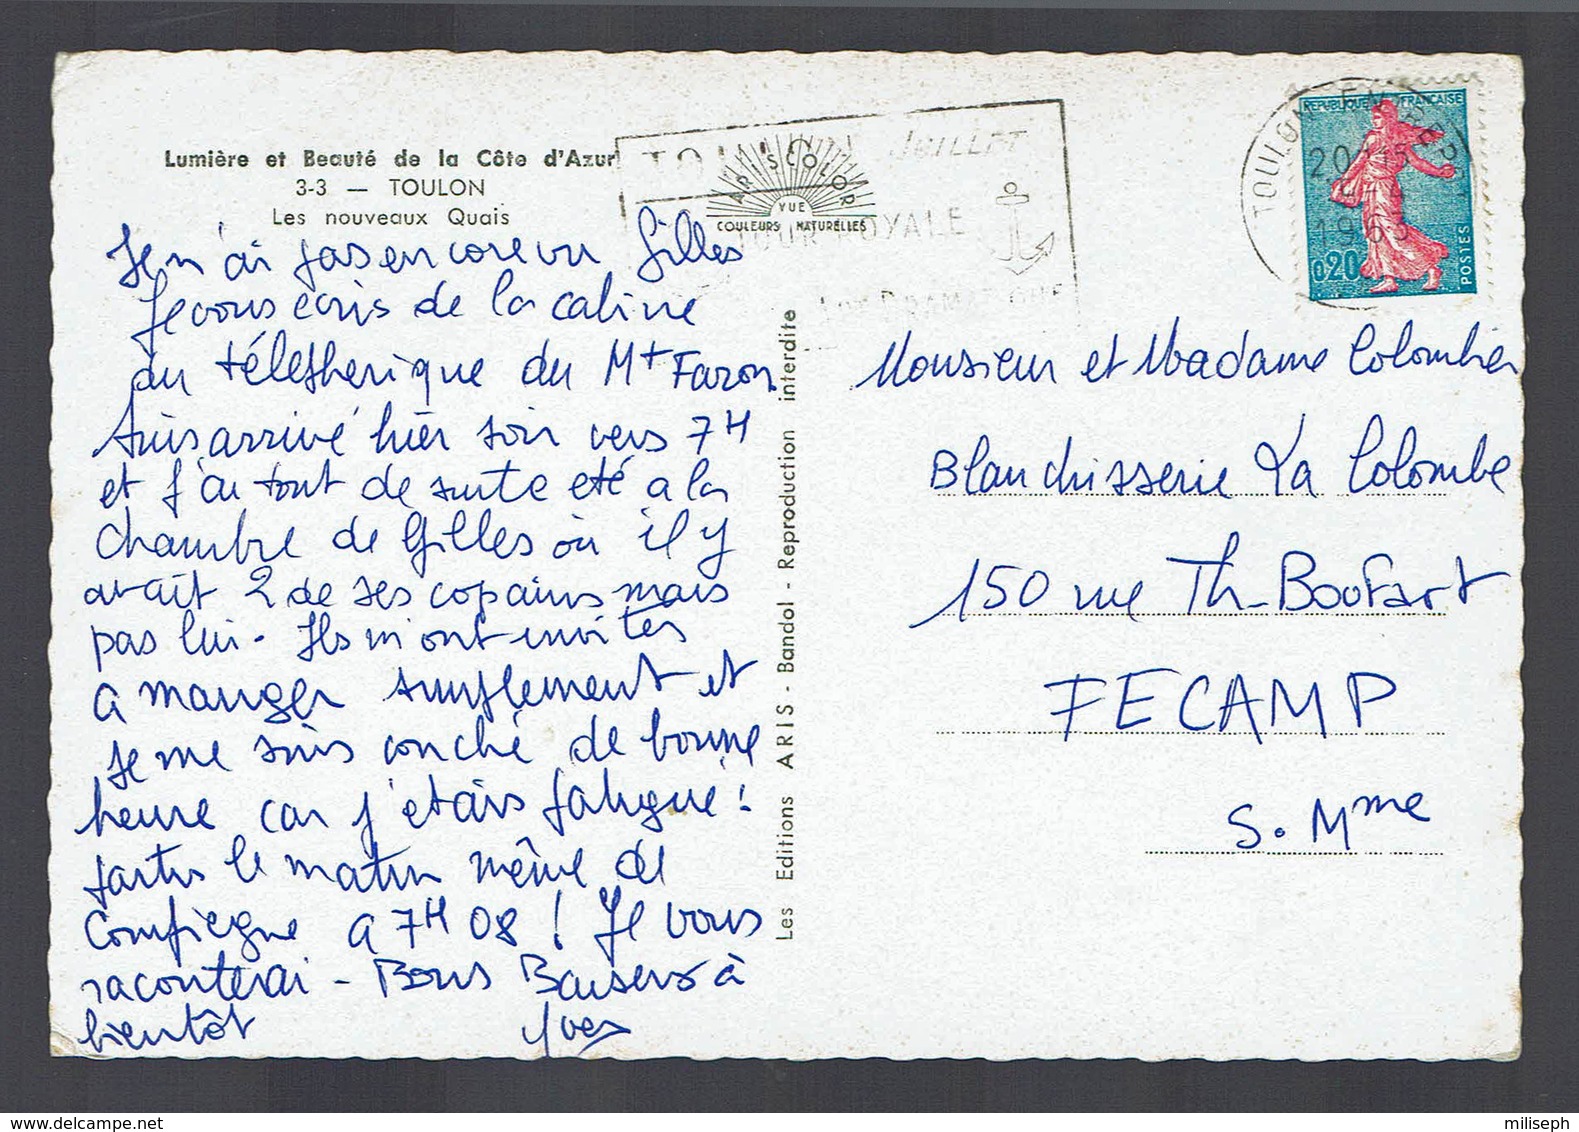 Lumière et Beauté de la Côte d'Azur
3-3 — TOULON
Les nouveaux Quais
Je n'ai pas encore vu Gilles
Je vous écris de la cabine
du téléphérique du Mt Faron
Suis arrivé hier soir vers 7H
et j'ai tout de suite été a la
chambre de Gilles où il y
avait 2 de ses copains mais
pas lui. Ils m'ont invités
a manger simplement et
Je me suis couché de bonne
heure car j'etais fatigué!
partis le matin même de
Compiegne a 7H 08 ! Je vous
raconterai - Bons Baisers à
bientôt Yves
Les Editions ARIS - Bandol - Reproduction interdite
ARISCOLOR
VUE
COULEURS NATURELLES
JUILLET
TOUR ROYALE
TOULON
1963
REPUBLIQUE FRANÇAISE
0,20
POSTES
Monsieur et Madame Colombier
Blanchisserie La Colombe
150 rue Th-Boufart
FECAMP
S. Mme
miliseph